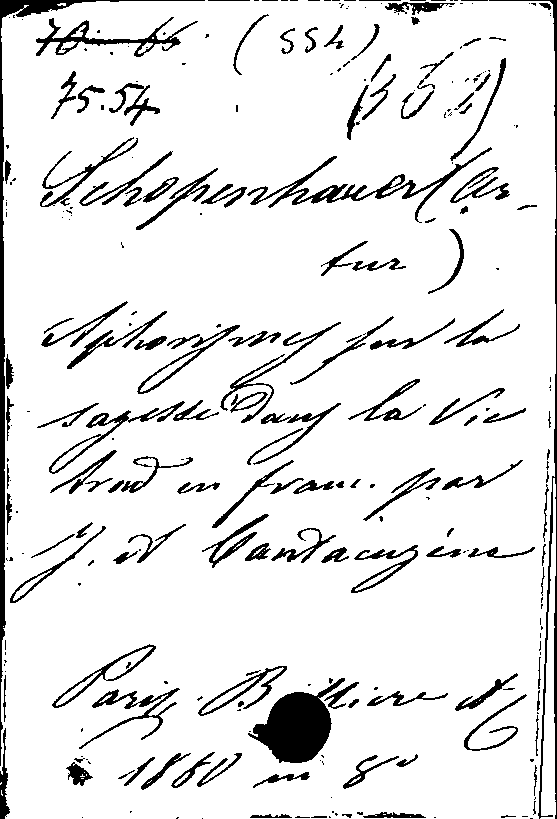 70-66 (SS4)
75.54 (362)
Schopenhauer (Ar-
tur)
Aphorismes sur la
sagesse dans la vie
trad en franc. par
J. A Cantacuzène
Paris. B llière et
1880 in 8°